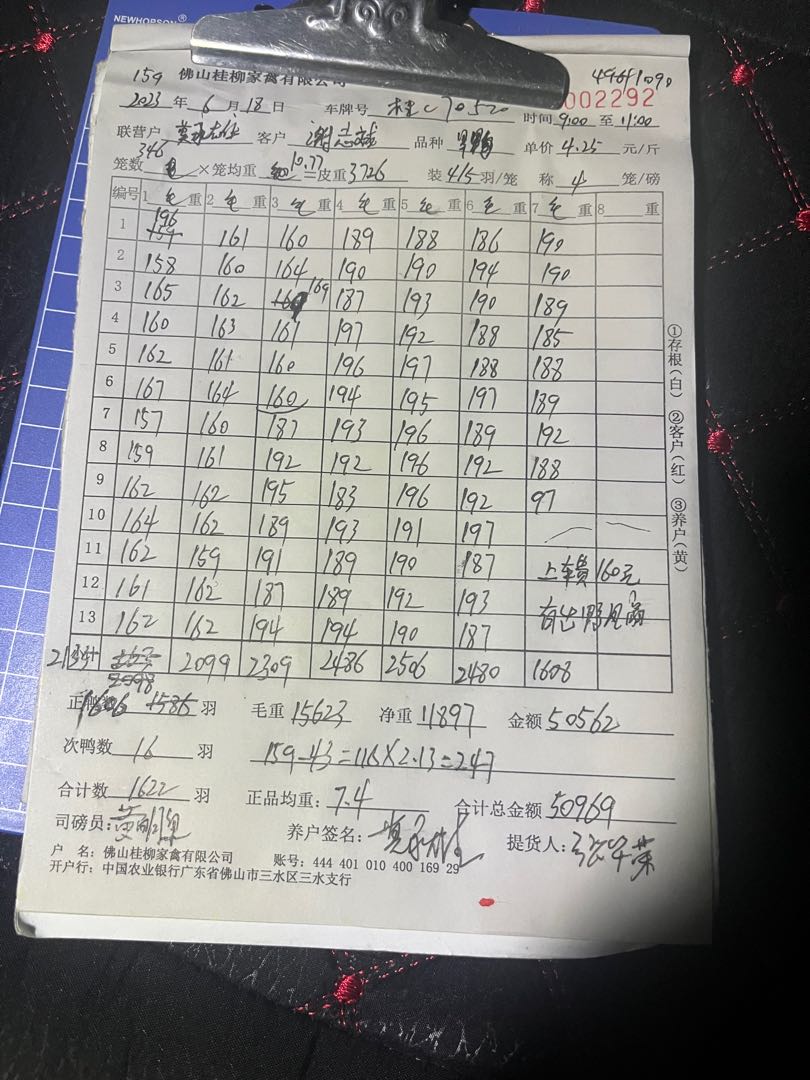 NEWHOPSON®
159 佛山桂柳家禽有限公司
002292
2023 年 6 月 18 日 车牌号 桂C70520 时间 9:00 至 11:00
联营户 客户 谢志斌 品种 单价 4.25 元/斤
346
笼数 ×笼均重 10.77 =皮重 3726 装 4/5 羽/笼 称 4 笼/磅
编号 1 毛 重 2 毛 重 3 毛 重 4 毛 重 5 毛 重 6 毛 重 7 毛 重 8 重
196
1 159 161 160 189 188 186 190
2 158 160 164 190 190 194 190
3 165 162 169 187 193 190 189
4 160 163 167 197 192 188 185
5 162 161 160 196 197 188 188
6 167 164 160 194 195 197 189
7 157 160 187 193 196 189 192
8 159 161 192 192 196 192 188
9 162 162 195 183 196 192 97
10 164 162 189 193 191 197
11 162 159 191 189 190 187 上车费160元
12 161 162 187 189 192 193
13 162 162 194 194 190 187
2135 计 2099 2309 2486 2506 2480 1608
2098
正鸭数 1606 1586 羽 毛重 15623 净重 11897 金额 50562
次鸭数 16 羽 159-43=116×2.13=247
合计数 1622 羽 正品均重: 7.4 合计总金额 50969
司磅员: 养户签名: 提货人:
户 名: 佛山桂柳家禽有限公司 账号: 444 401 010 400 169 29
开户行: 中国农业银行广东省佛山市三水区三水支行
①存根(白) ②客户(红) ③养户(黄)